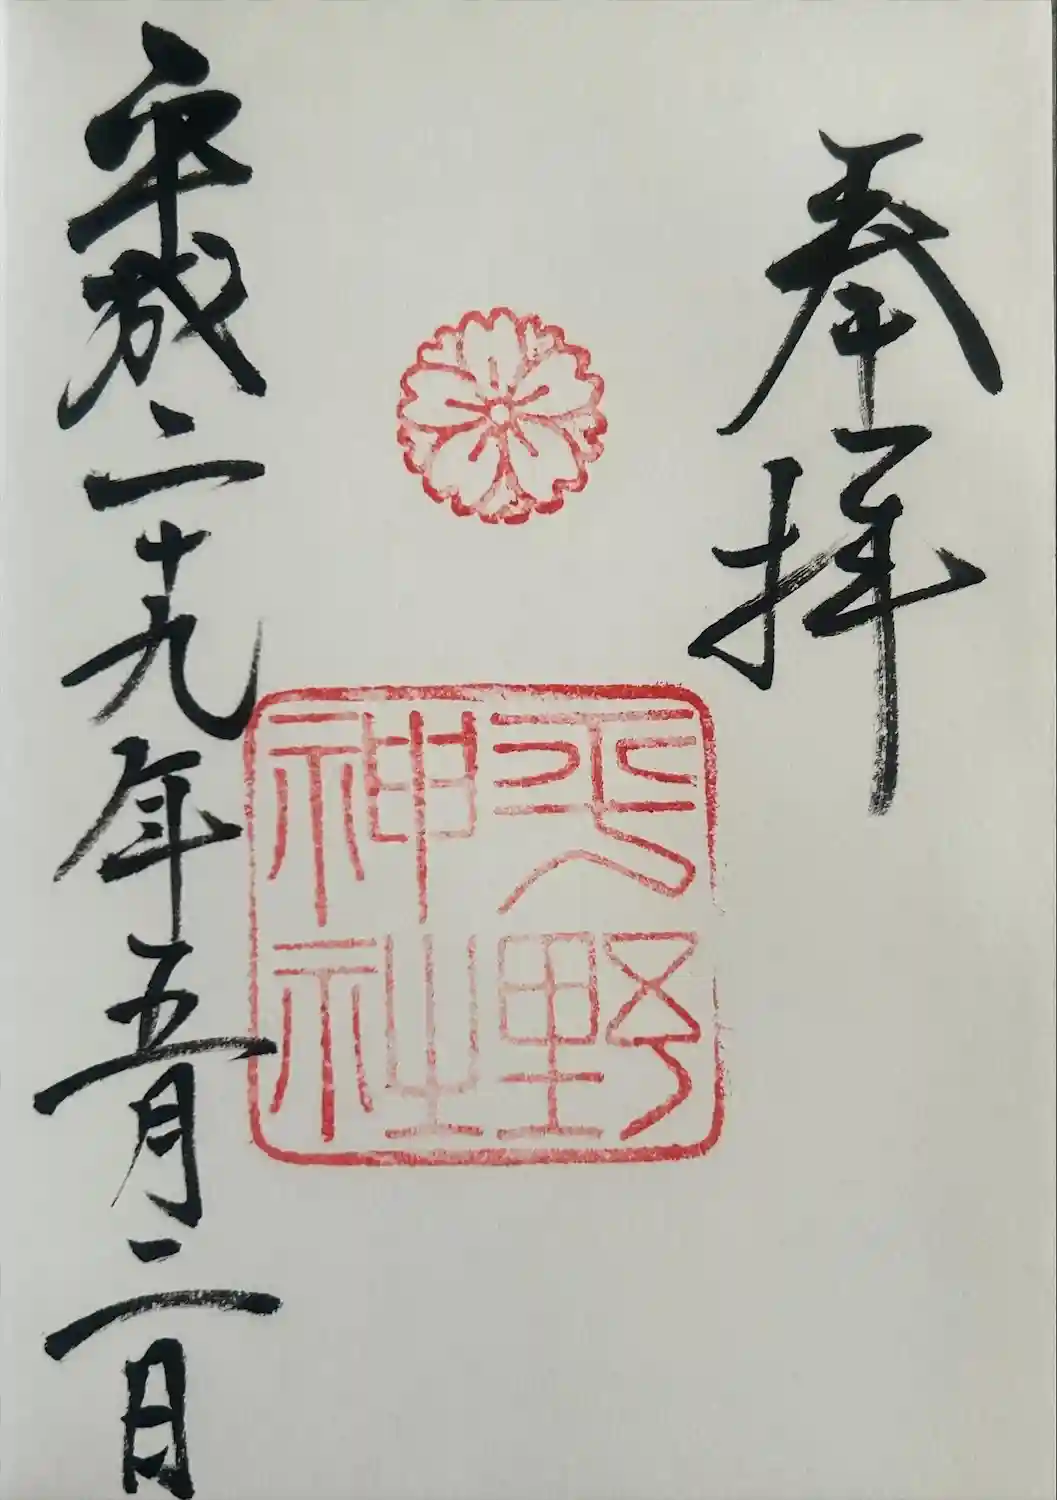 奉拝
平野神社
平成二十九年五月二日